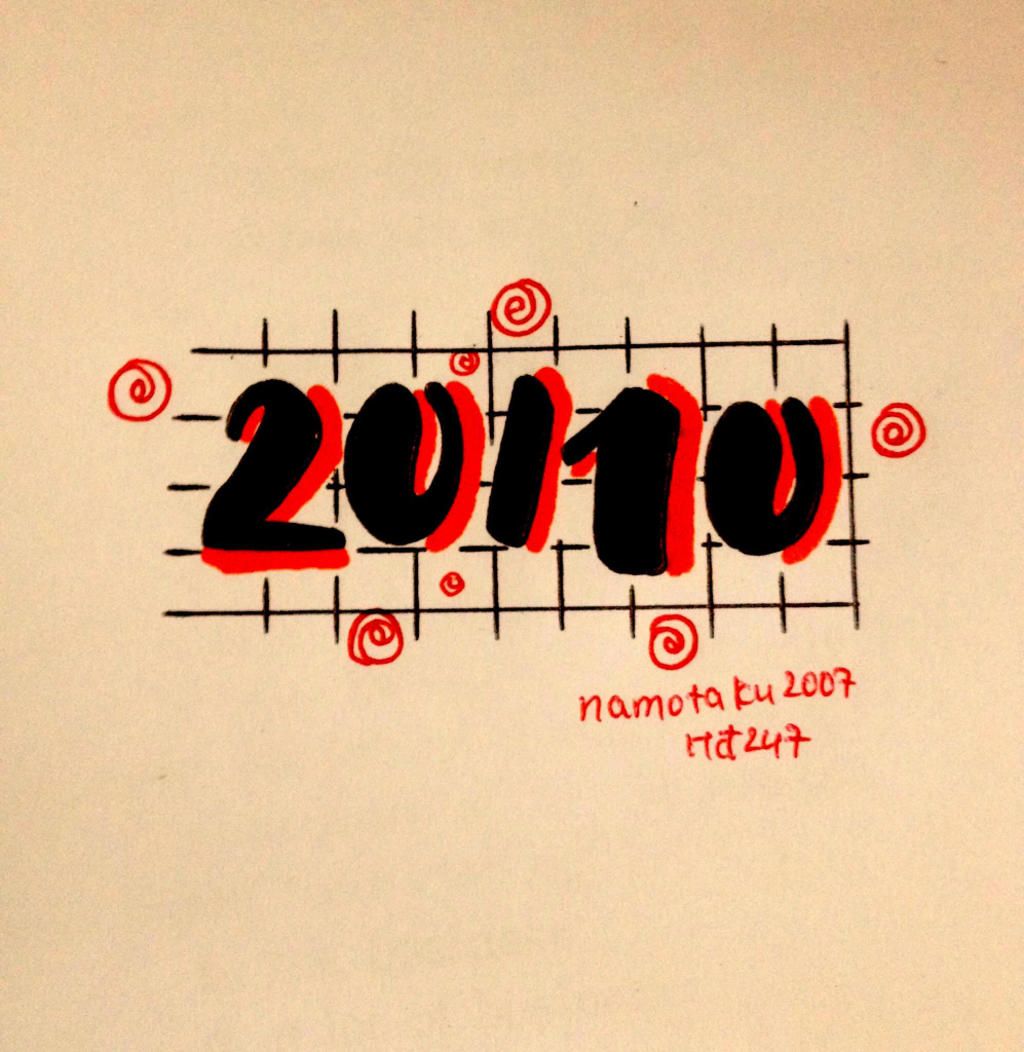 20/10
namotaku 2007
Hđ247